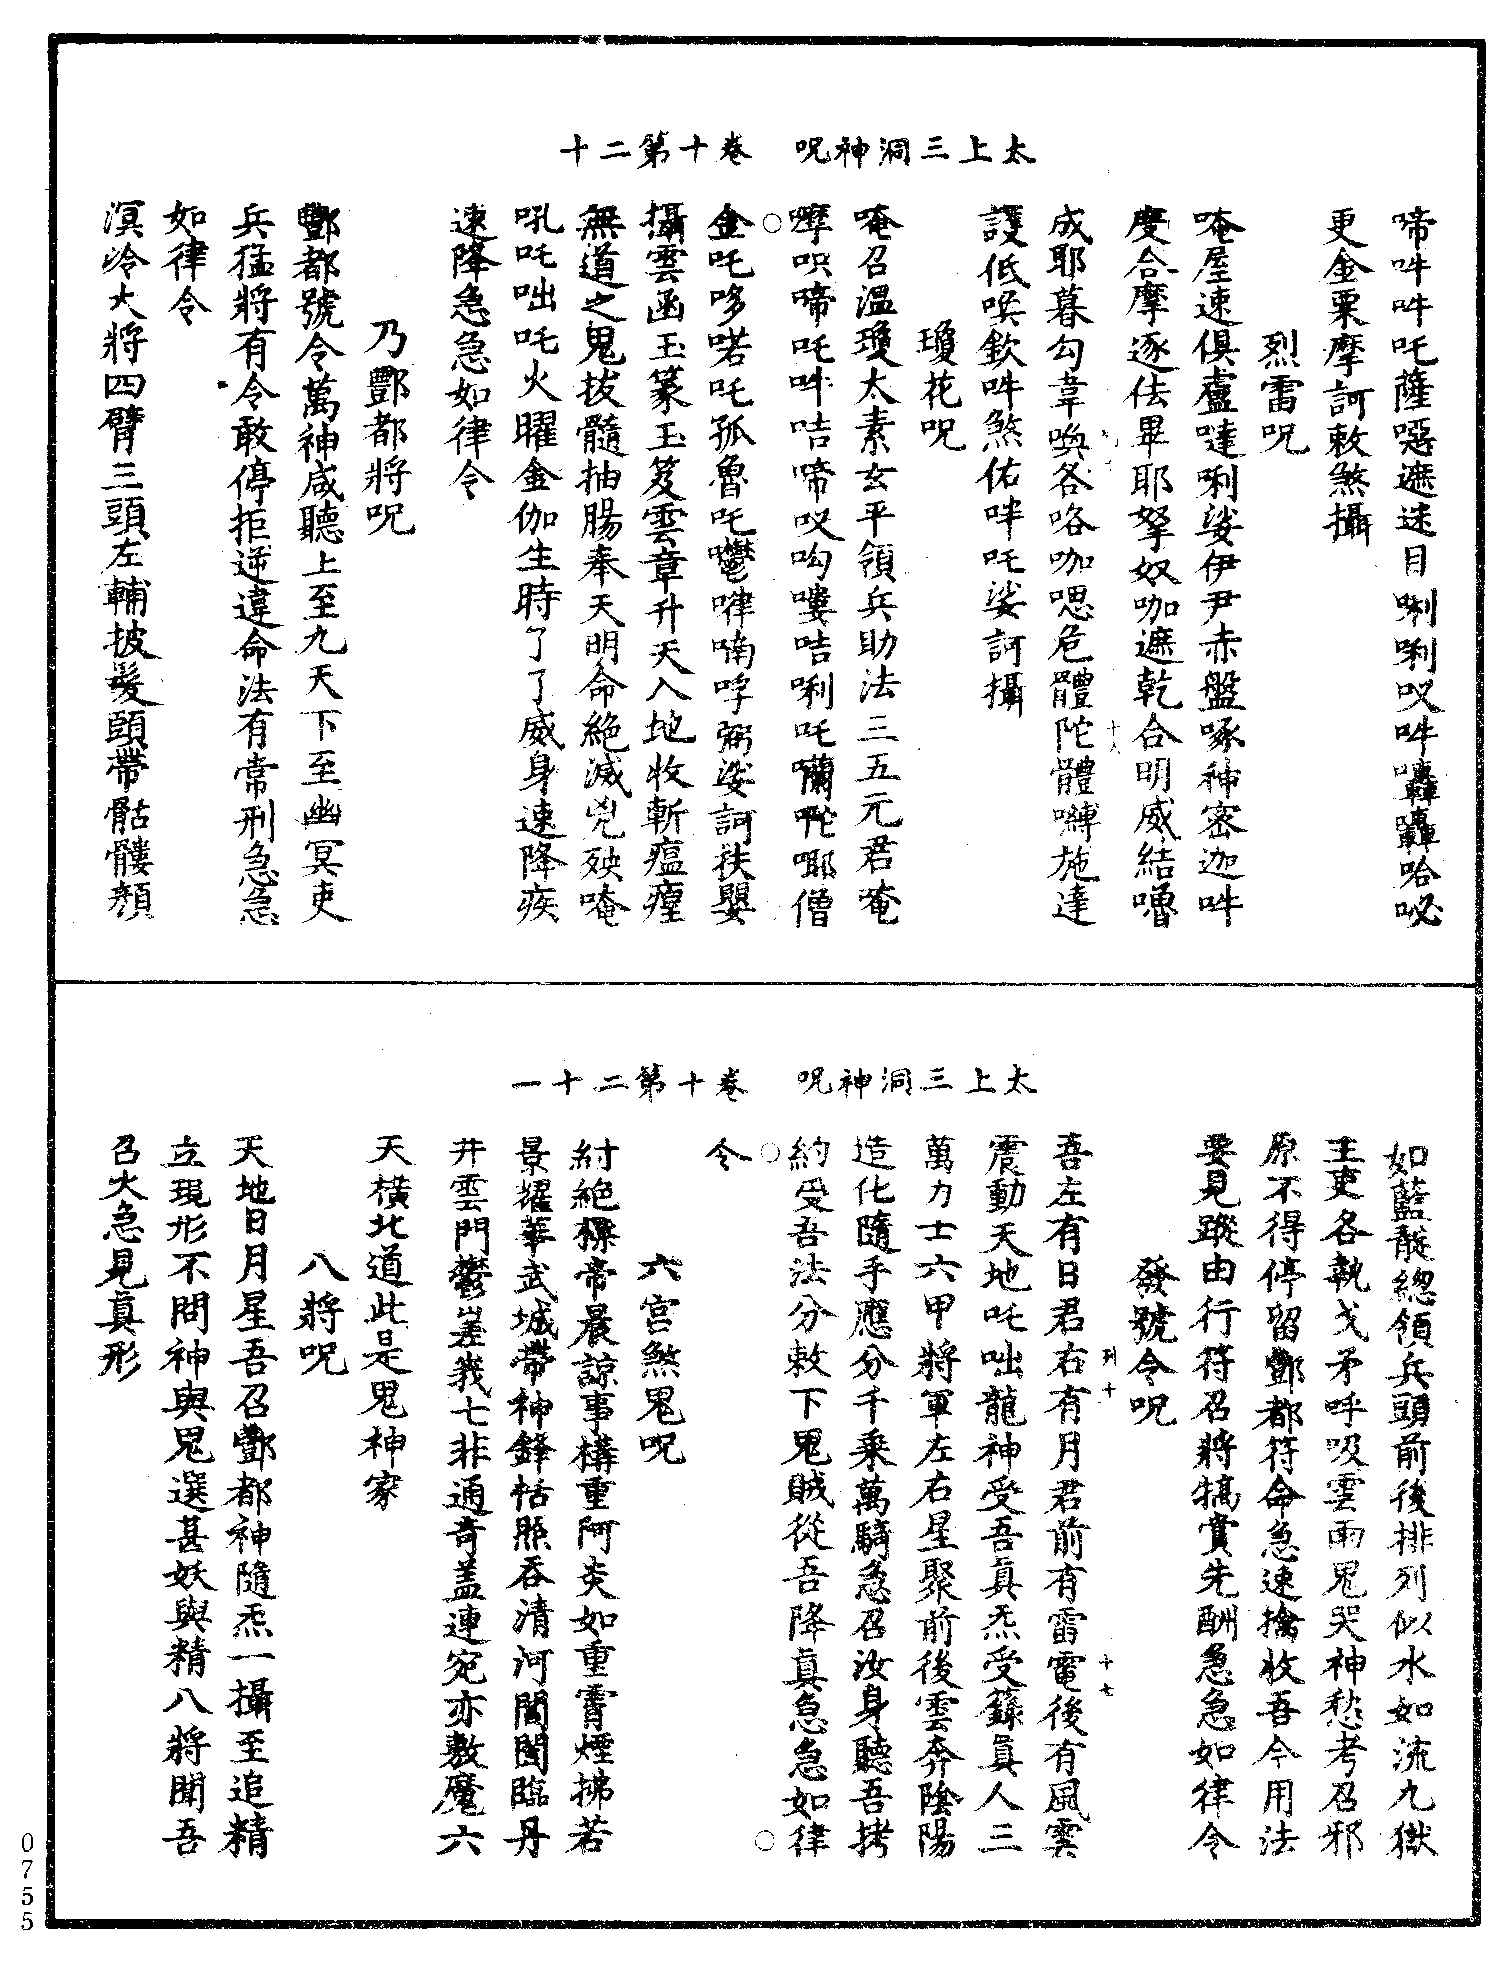 太上三洞神呪　卷十第二十
啼吽吽吒薩噁遮迷目唎唎吸吽囀囀哈咇
更金栗摩訶敕煞攝
烈雷呪
唵屋速俱盧噠唎娑伊尹赤盤啄神密迦吽
度合摩逐佉畢耶拏奴咖遮乾合明威結嚕
成耶暮勾韋喚各咯咖嗯危體陀體嚩施達
護低㗛欽吽煞佑吽吒娑訶攝
瓊花呪
唵召溫瓊太素玄平領兵助法三五元君唵
嚤呮啼吒吽咭啼吸呴嘍咭唎吒囒㖠哪僧
金吒哆喏吒孤魯吒嚩嘽喃哹弼娑訶袟嬰
攝雲函玉篆玉笈雲章升天入地收斬瘟㾏
無道之鬼拔髓抽腸奉天明命絕滅兇殃唵
吼吒咄吒火曜金伽生時了了威身速降疾
速降急急如律令
乃酆都將呪
酆都號令萬神咸聽上至九天下至幽冥吏
兵猛將有令敢停拒逆違命法有常刑急急
如律令
溟泠大將四臂三頭左輔披髮頭帶骷髏顏
十八
太上三洞神呪　卷十第二十一
如藍靛總領兵頭前後排列似水如流九獄
主吏各執戈矛呼吸雲雨鬼哭神愁考召邪
原不得停留酆都符命急速擒收吾今用法
要見蹤由行符召將犒賞先酬急急如律令
發號令呪
吾左有日君右有月君前有雷電後有風雲
震動天地吒咄龍神受吾真炁受籙真人三
萬力士六甲將軍左右星聚前後雲奔陰陽
造化隨手應分千乘萬騎急召汝身聽吾拷
約受吾法分敕下鬼賊從吾降真急急如律
令
六宮煞鬼呪
紂絕標帝晨諒事構重阿炎如重霄煙拂若
景耀華武城帶神鋒恬照吞清河閶闔臨丹
井雲門鬱嵳峩七非通奇蓋連宛亦敷魔六
天橫北道此是鬼神家
八將呪
天地日月星吾召酆都神隨炁一攝至追精
立現形不問神與鬼選甚妖與精八將聞吾
召火急見真形
列十
十七
0755